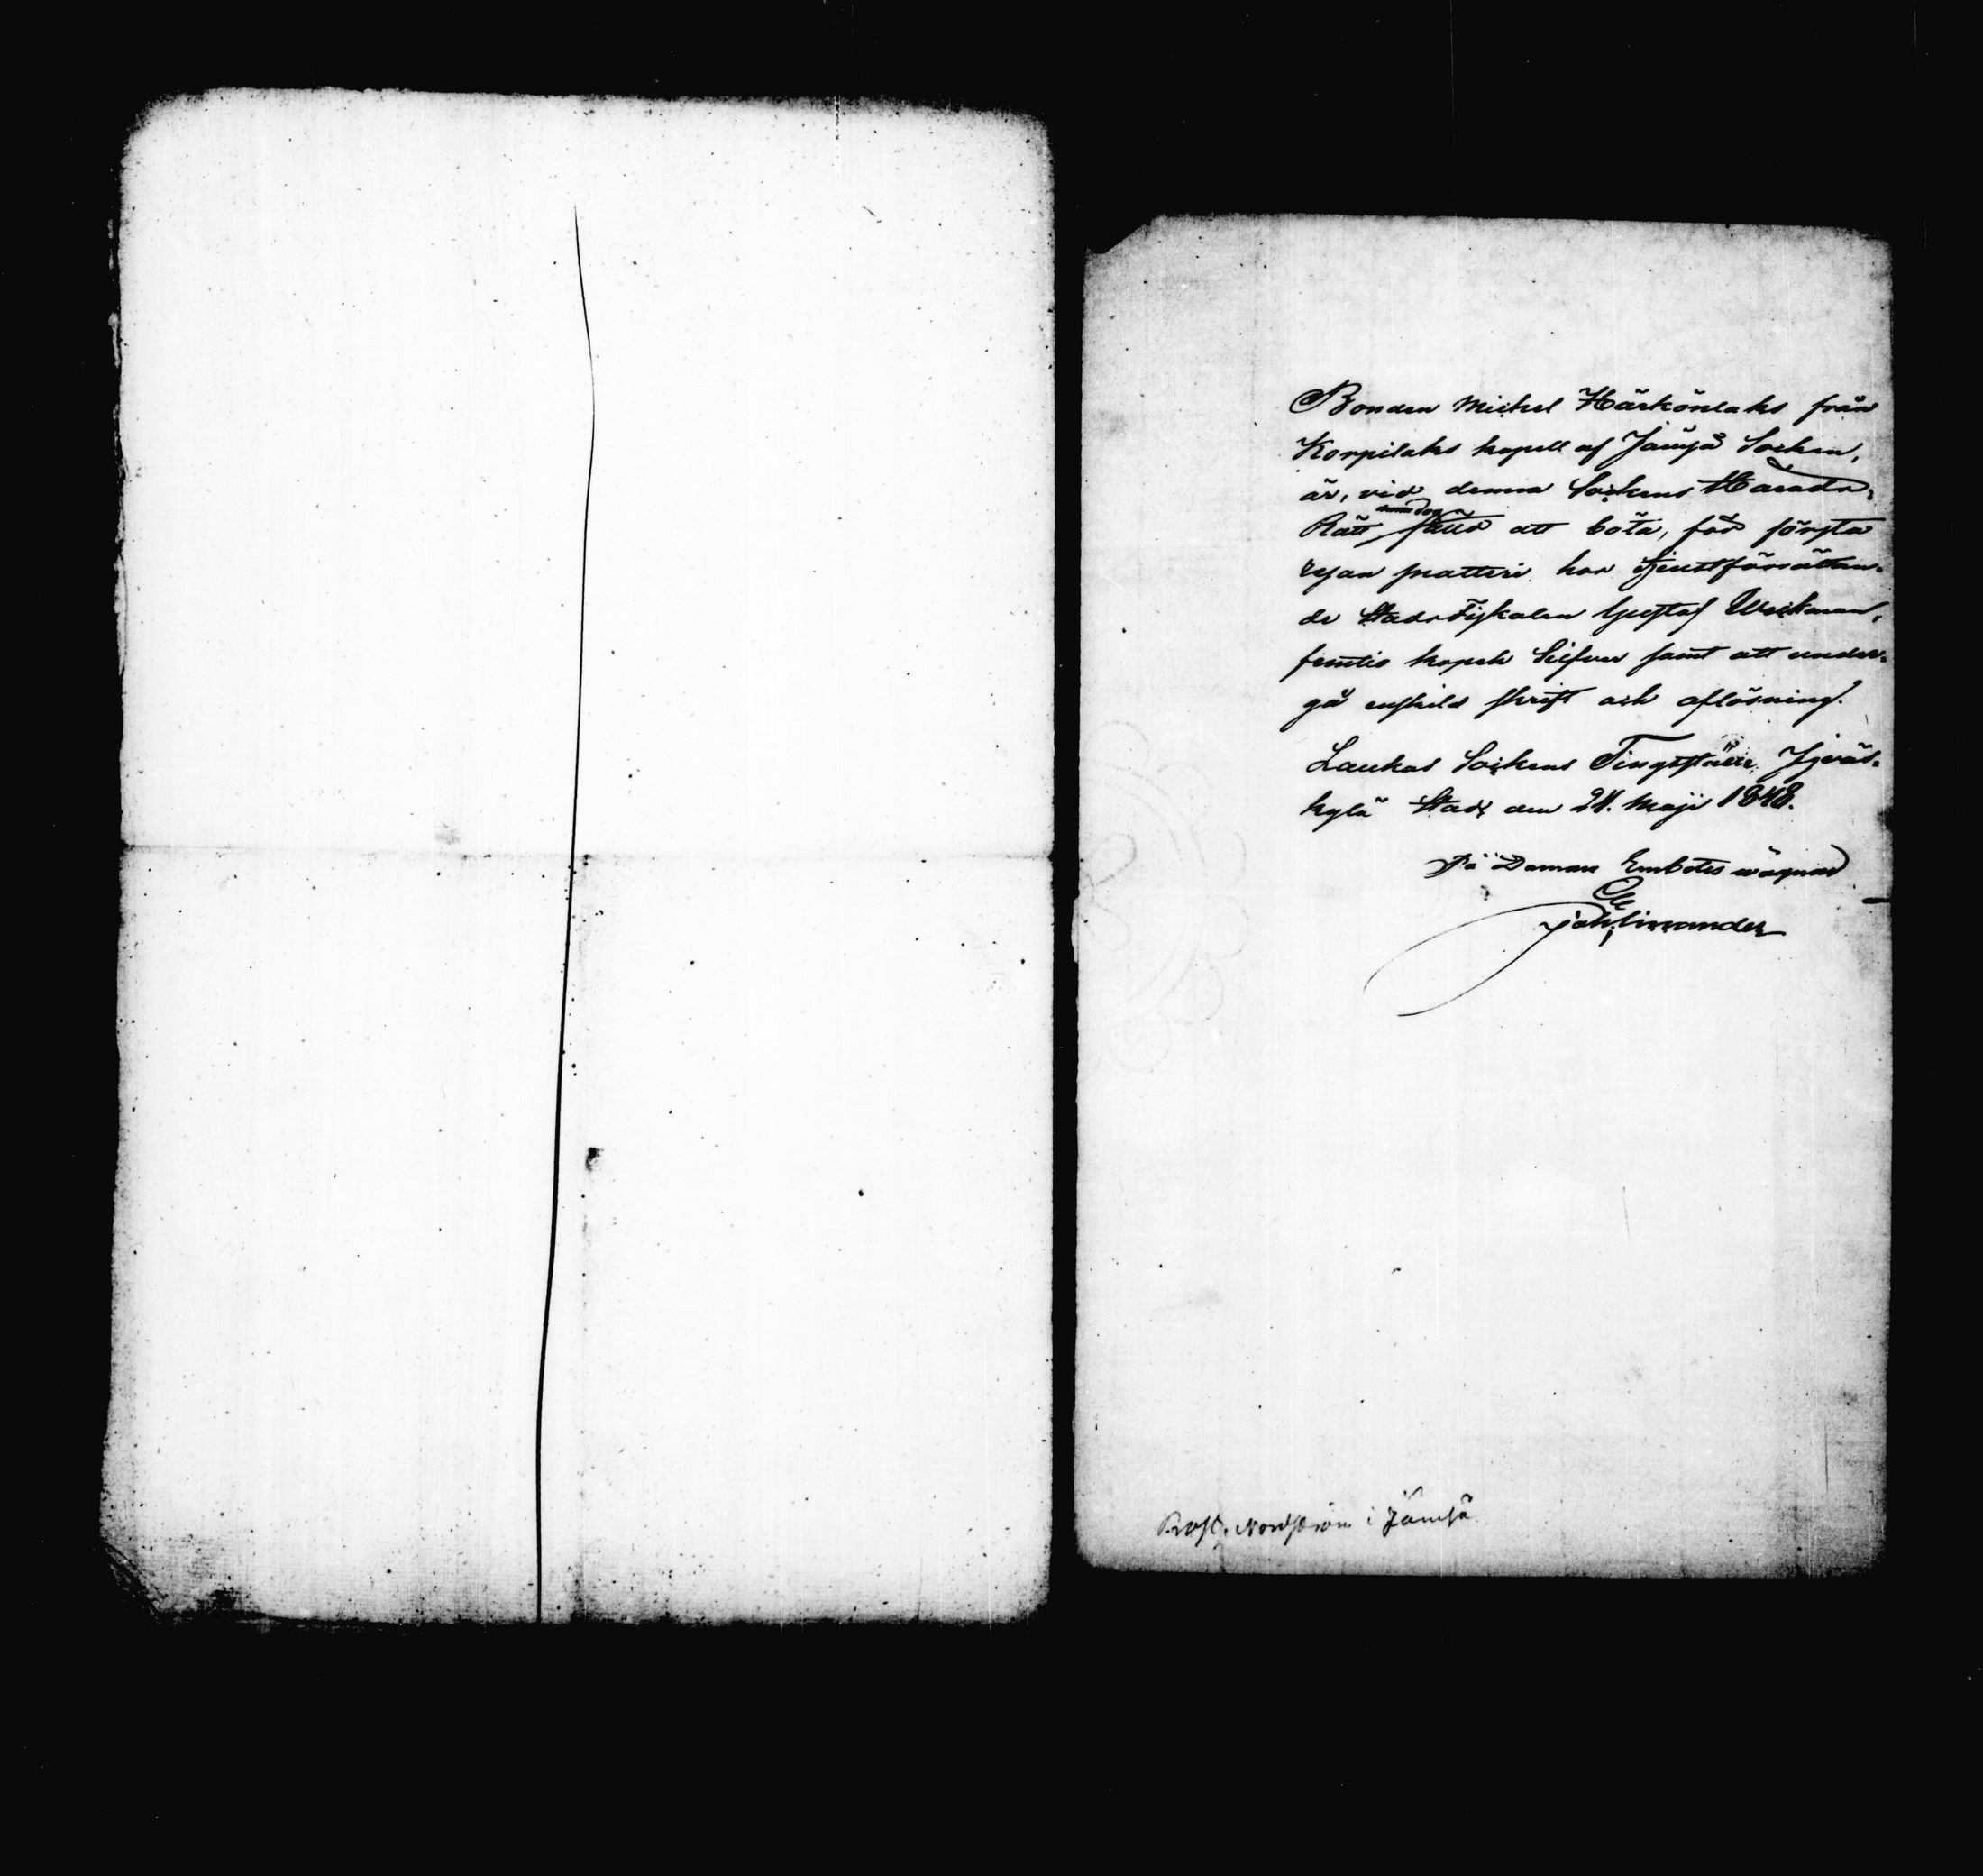 Bonden Michel Härkönlaks från
Korpilaks kapell af Jämsä Socken,
är, vid denna Sockens Härads-
Rätt denna dag fälld att böta, för första
resan snatteri hos tjenstförrättan-
de Stads Fiskalen Gustaf Weckman,
femtio kopek Silfver samt att under-
gå enskild skrift och aflösning.
Laukas Sockens Tingsställe, Jyväs-
kylä Stad, den 24. Maji 1848.
På Domare Embetes wägnar
Prost. Nordström i Jämsä